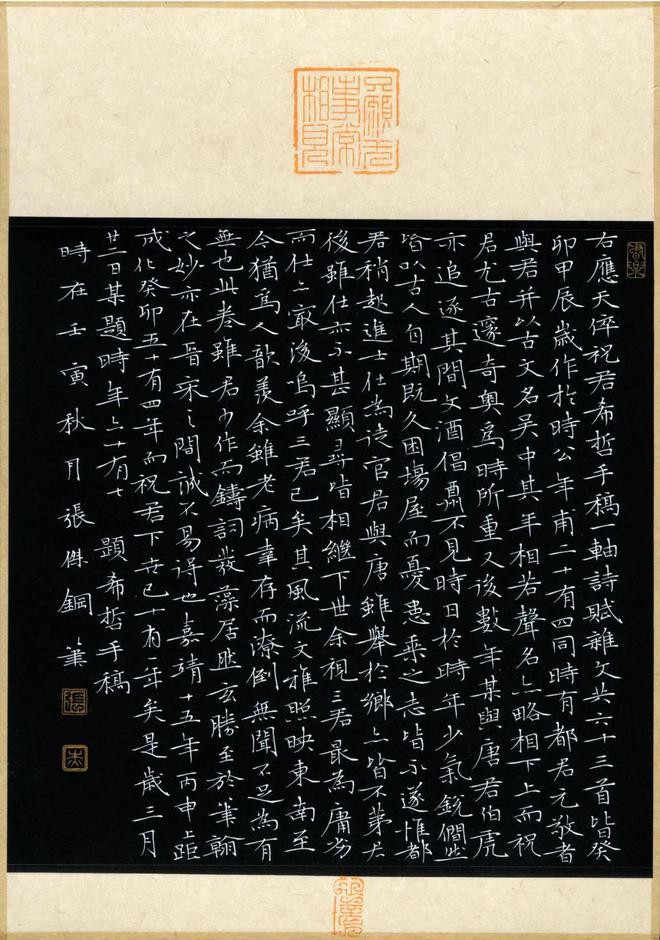 但願无事常相見
右應天倅祝君希哲手稿一軸詩賦雜文共六十三首皆癸
卯甲辰歲作於時公年甫二十有四同時有都君元敬者
與君并以古文名吳中其年相若聲名亦略相下上而祝
君尤古邃奇奧為時所重又後數年某與唐君伯虎
亦追逐其間文酒倡酬不見時日於時年少氣銳儼然
皆以古人自期既久困場屋而憂患乘之志皆不遂惟都
君稍起進士仕為徒官君與唐雖舉於鄉亦皆不第君
後雖仕亦不甚顯尋皆相繼下世余視三君最為庸劣
而仕亦最後嗚呼三君已矣其風流文雅照映東南至
今猶為人歆羨余雖老病幸存而潦倒無聞不足為有
無也此卷雖君少作而鑄詞發藻居然玄勝至於筆翰
之妙亦在晉宋之間誠不易得也嘉靖十五年丙申上距
成化癸卯五十有四年而祝君下世已十有一年矣是歲三月
廿二日某題時年六十有七 題希哲手稿
時在壬寅秋月張傑鋼筆
張